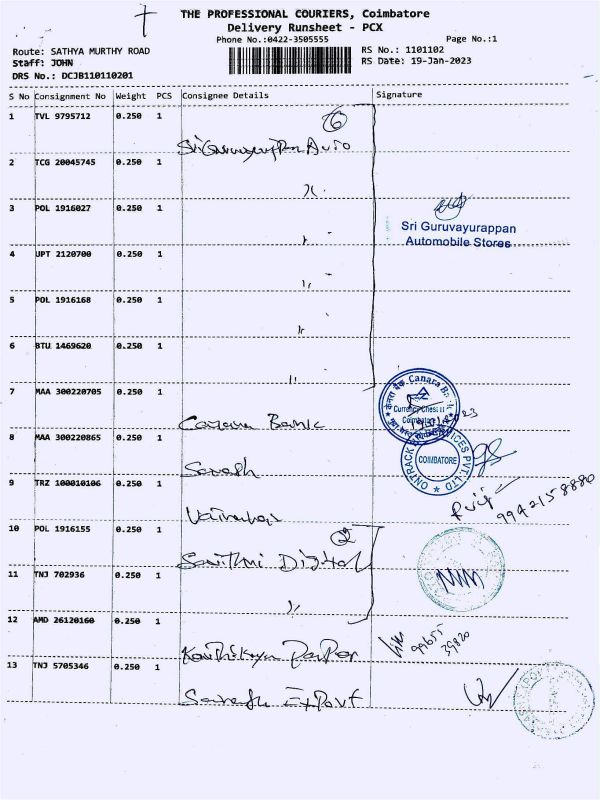 THE PROFESSIONAL COURIERS, Coimbatore
Delivery Runsheet - PCX
Phone No.:0422-3505555
Page No.:1
Route: SATHYA MURTHY ROAD
RS No.: 1101102
Staff: JOHN
RS Date: 19-Jan-2023
DRS No.: DCJB110110201
S No Consignment No Weight PCS Consignee Details Signature
1 TVL 9795712 0.250 1
6
Auto
2 TCG 20045745 0.250 1
3 POL 1916027 0.250 1
Sri Guruvayurappan
Automobile Stores
4 UPT 2120700 0.250 1
5 POL 1916168 0.250 1
6 BTU 1469620 0.250 1
7 MAA 300220705 0.250 1
Canara Bank
Canara Bank
Currency Chest II
Coimbatore
8 MAA 300220865 0.250 1
ONTRACK SERVICES PVT. LTD
COIMBATORE
9 TRZ 100010106 0.250 1
9942158880
10 POL 1916155 0.250 1
2
Digital
11 TNJ 702936 0.250 1
12 AMD 26120160 0.250 1
Paper
99655
39820
13 TNJ 5705346 0.250 1
Export